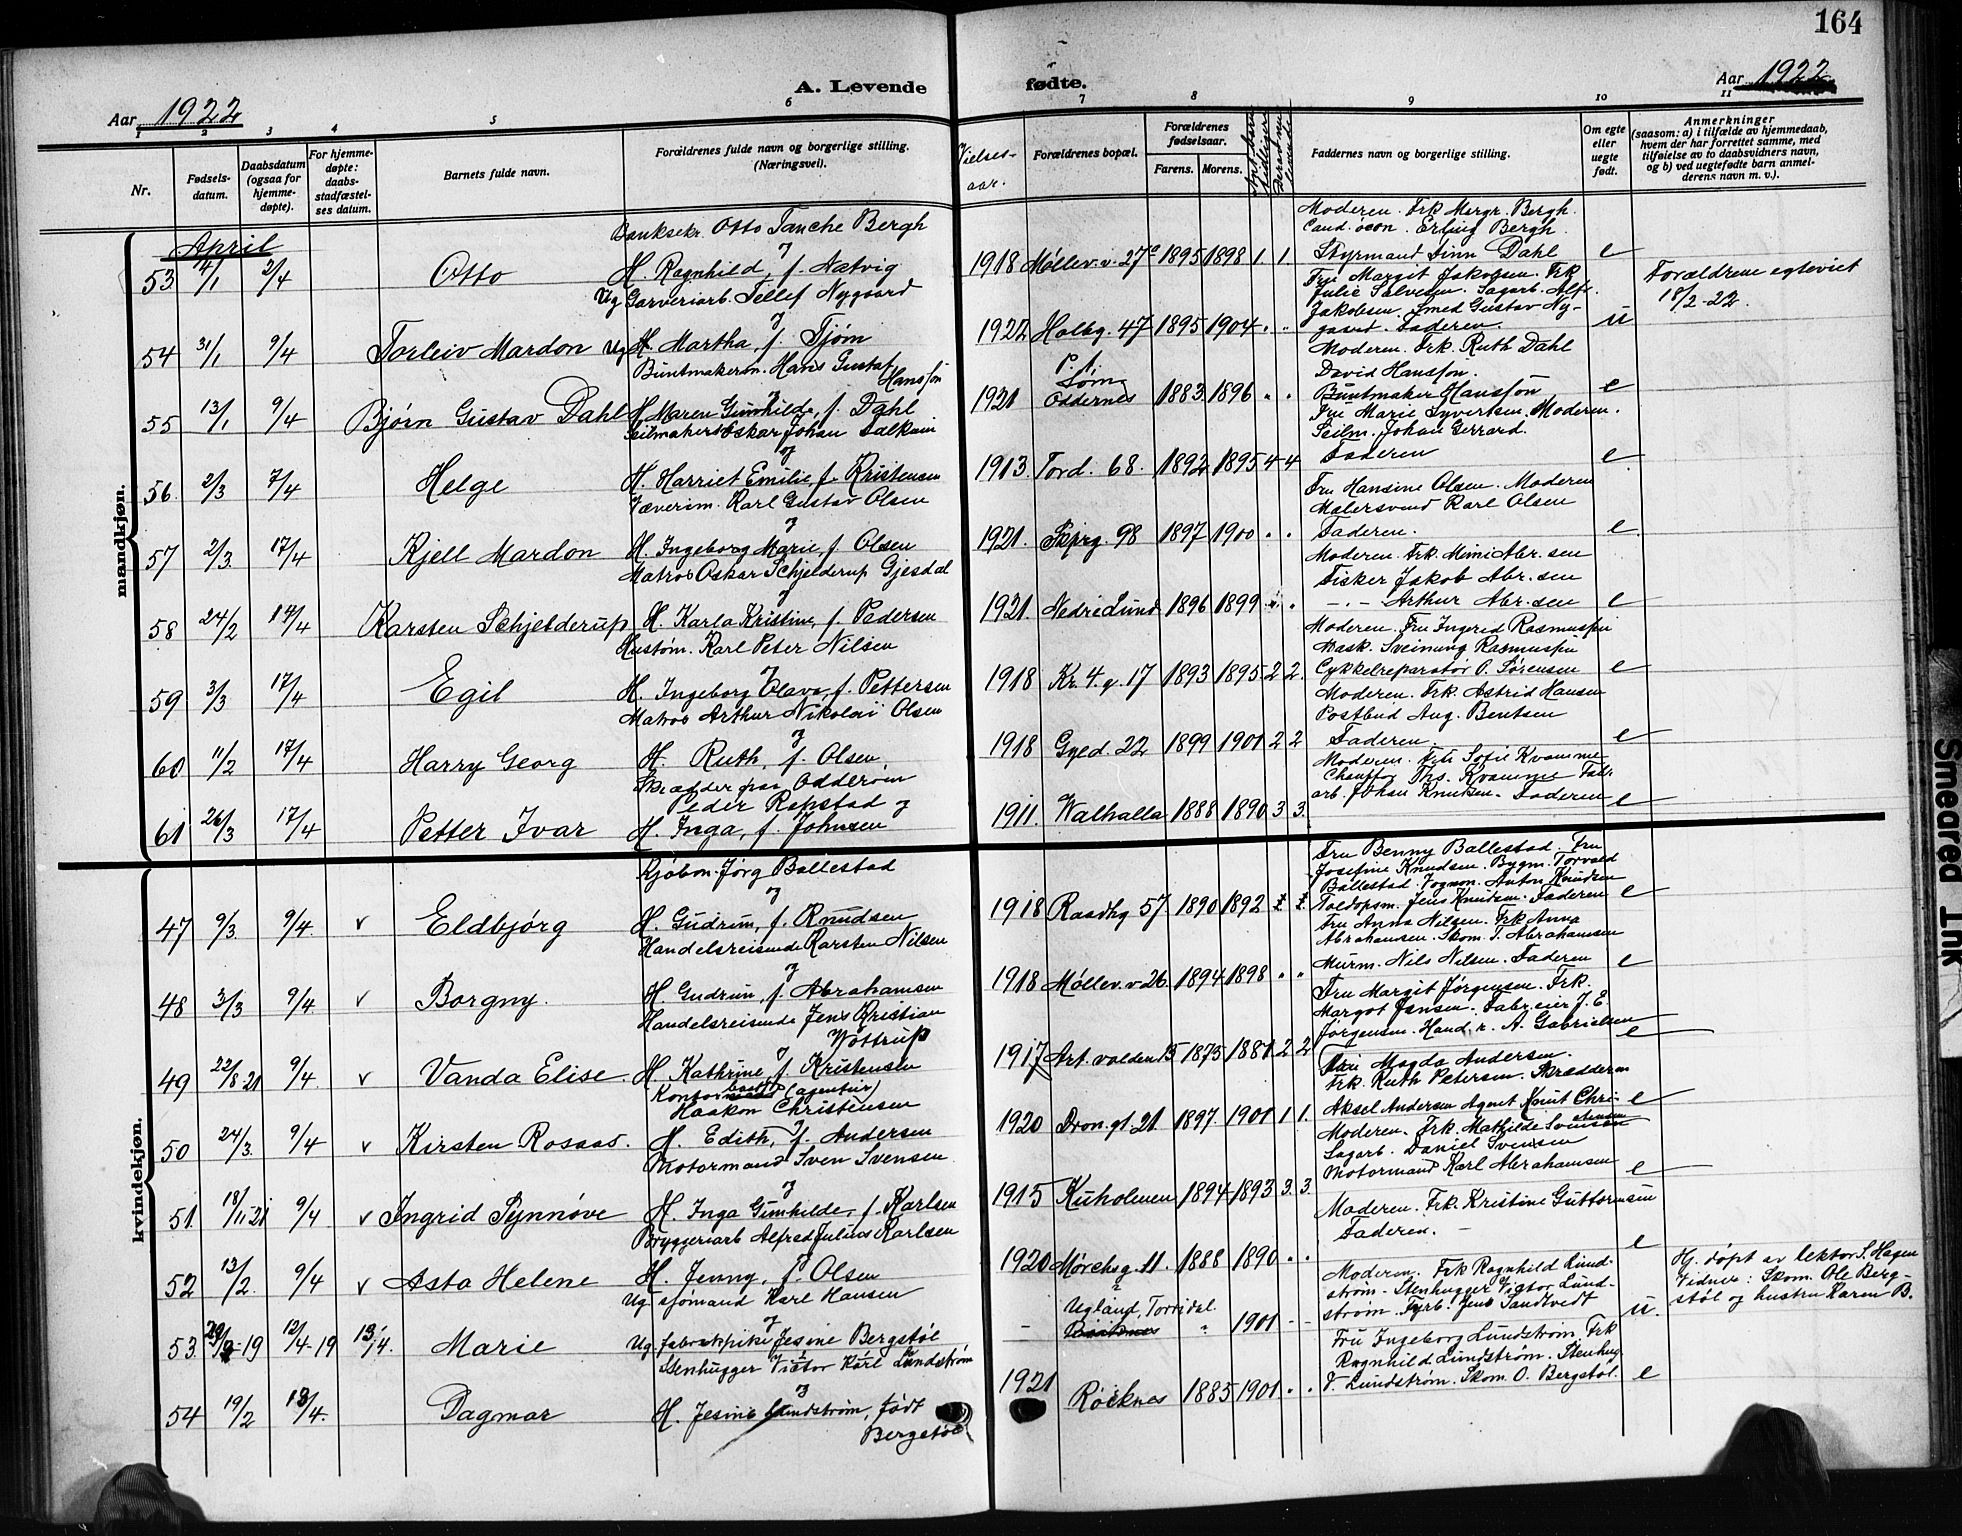 164
A. Levende fødte.
Aar 1922
Aar 1922
1 2 3 4 5 6 7 8 9 10 11
Nr.
Fødsels-
datum.
Daabsdatum
(ogsaa for
hjemme-
døpte).
For hjemme-
døpte:
daabs-
stadfæstel-
ses datum.
Barnets fulde navn.
Forældrenes fulde navn og borgerlige stilling.
(Næringsvei).
Vielses-
aar.
Forældrenes bopæl.
Forældrenes
fødselsaar.
Farens. Morens.
Faddernes navn og borgerlige stilling.
Om egte
eller
uegte
født.
Anmerkninger
(saasom: a) i tilfælde av hjemmedaab,
hvem der har forrettet samme, med
tilføielse av to daabsvidners navn,
og b) ved uegtefødte barn anmel-
derens navn m. v.).
mandkjøn.
April
Banksekr. Otto Tanche Bergh
53 14/1 2/4 Otto
H. Ragnhild, f. Natvig
1918 Møllev. v. 27c 1895 1898 1 1.
Moderen. Frk Margr. Bergh.
Cand. öcon. Erling Bergh.
Styrmand Finn Dahl e
Ug Garveriarb. Tellef Nygaard
54 31/1 9/4 Torleiv Mardon
Ug H. Martha, f. Tjøm
1922 Holbg. 47 1895 1904
Fru Margit Jakobsen. Frk
Julie Salvesen. Sagarb. Alfr.
Jakobsen. Smed Gustav Ny-
gaard. Faderen. u
Forældrene egteviet
18/2-22.
Buntmakersv. Hans Gustaf
Hansson
55 13/1 9/4 Bjørn Gustav Dahl
H. Maren Gunhilde, f. Dahl
1921 Oddernes 1883 1896
Moderen. Frk. Ruth Dahl
David Hansson.
Buntmaker Hansson e
Seilmakersv. Oskar Johan Salkain
56 2/3 7/4 Helge
H. Harriet Emilie, f. Kristensen
1913. Tord. 68. 1892 1895 4 4
Fru Marie Syvertsen. Moderen.
Seilm. Johan Gerrard.
Faderen e
Karl Gustav Olsen
57 2/3 17/4 Kjell Mardon
H. Ingeborg Marie, f. Olsen
1921. Skprg. 98 1897 1900
Fru Hansine Olsen. Moderen
Malersvend Karl Olsen
Faderen. e
Matros Oskar Schjelderup Gjesdal
58 24/2 14/4 Karsten Schjelderup
H. Karla Kristine, f. Pedersen
1921. Nedre Lund 1896 1899
Moderen. Frk. Mimi Abr.sen
Fisker Jakob Abr.sen
-.- Arthur Abr.sen e
Hustøm. Karl Peter Nilsen
59 3/3 17/4 Egil
H. Ingeborg Olava, f. Pettersen
1918 Kr. 4. g. 17 1893 1895 2 2.
Moderen. Fru Ingerid Rasmussen
Mask. Sveinung Rasmussen
Cykkelreparatør O. Sørensen e
Matros Arthur Nikolai Olsen
60 11/2 17/4 Harry Georg
H. Ruth, f. Olsen.
1918 Gyed. 22 1899 1901 2 2
Moderen. Frk. Astrid Hansen
Postbud Aug. Bentsen
Faderen. e
Skrædder paa Odderøen
Peder Rakstad og
61 26/3 17/4 Petter Ivar
H. Inga, f. Johnsen
1911. Walhalla 1888 1890 3 3.
Moderen. Frk Sofie Kvamme
Chauffør Ths. Kvamme Fabr.
arb. Johan Knutsen. Faderen e
kvindekjøn.
Kjøbm. Jørg Ballestad
47 9/3 9/4 v Eldbjørg
H. Gudrun, f. Knudsen
1918 Raadhg 57 1890 1892
Fru Benny Ballestad. Fru
Josefine Knudsen. Bygm. Torvald
Ballestad. Vognm. Anton Knudsen
Toldopsm. Jens Knudsen. Faderen e
Handelsreisende Karsten Nilsen
48 3/3 9/4 v Borgny.
H. Gudrun, f. Abrahamsen
1918 Møllev. v 26 1894 1898
Fru Anna Nilsen. Frk Anna
Abrahamsen. Skom. T. Abrahamsen
Murm. Nils Nilsen. Faderen e
Handelsreisende Jens Kristian
Wøttrup
49 22/8 21 9/4 v Vanda Elise.
H. Kathrine, f. Kristensen
1917 Art. volden 15 1875 1881 2 2
Fru Margit Jørgensen. Frk.
Margot Jensen. Fabr.eier J. E.
Jørgensen. Hand. r. A. Gabrielsen e
(agentur)
Haakon Christensen
50 24/3. 9/4 v Kirsten Rosaas.
H. Edith, f. Andersen
1920 Dron. gt. 21. 1897. 1901 1 1.
Magda Andersen.
Frk. Ruth Petersen. Skrædderm
Aksel Andersen Agent Knut Chri-
stensen e
Motormand Sven Svensen
51 18/11 21 9/4 v Ingrid Synnøve
H. Inga Gunhilde, f. Karlsen
1915 Kuholmen 1894 1893 3. 3
Moderen. Frk. Mathilde Svensen
Sagarb. Daniel Svensen
Motormand Karl Abrahamsen e
Bryggeriarb Alfred Julius Karlsen
52 13/2. 9/4 v Asta Helene
H. Jenny, f. Olsen
1920 Mørchsg. 11. 1888 1890
Moderen. Frk. Kristine Guttormsen
Faderen. - e
Ug sjømand Karl Hansen
53 12/4-19 13/4. Marie
Ug. fabrikpike Jesine Bergstøl
- Ugland, Torridal 1901 - -
Moderen. Frk Ragnhild Lund-
strøm. Stenhugger Victor Lund-
strøm. Fyrb. Jens Sandtvedt u.
Hj. døpt av lektor S. Hagen
Vidner: Skom. Ole Berg-
støl og hustru Karen B.
Stenhugger Victor Karl Lundstrøm
54 19/2 18/4. Dagmar
H. Jesine Lundstrøm, født
Bergstøl
1921 Røeknes 1885 1901
Fru Ingeborg Lundstrøm. Frk
Ragnhild Lundstrøm. Stenhug.
V. Lundstrøm. Skom. O. Bergstøl. e
Smeared Ink